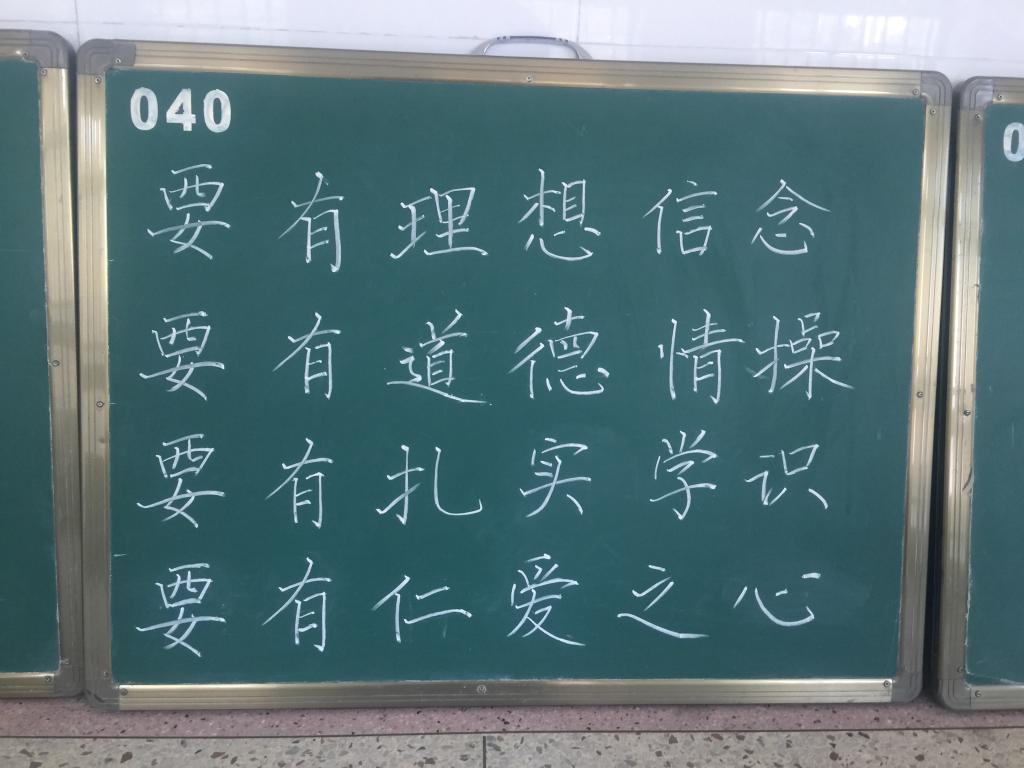 040
要有理想信念
要有道德情操
要有扎实学识
要有仁爱之心
0